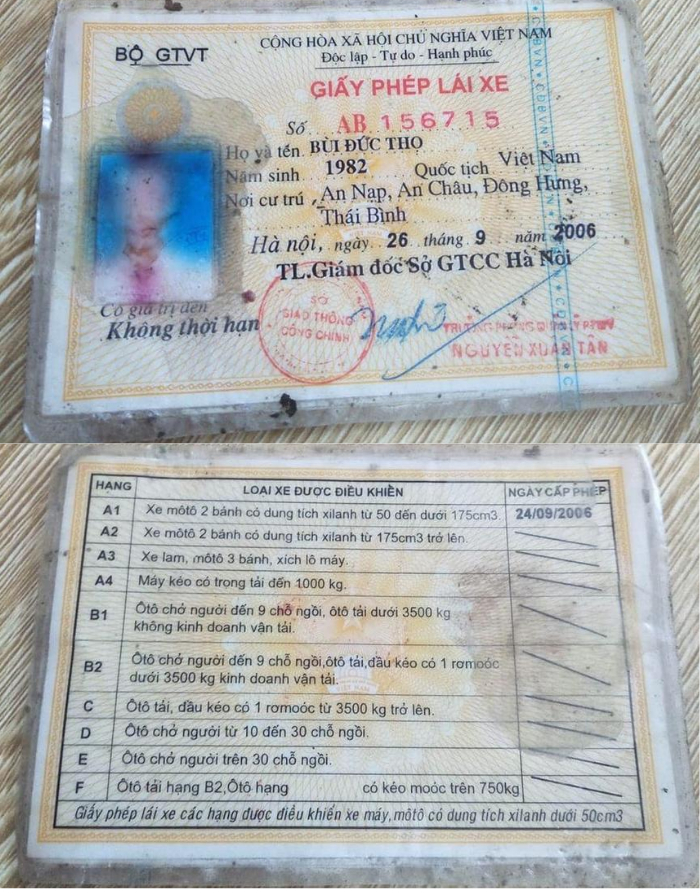 BỘ GTVT
CỘNG HÒA XÃ HỘI CHỦ NGHĨA VIỆT NAM
Độc lập - Tự do - Hạnh phúc
GIẤY PHÉP LÁI XE
Số AB 156715
Họ và tên BÙI ĐỨC THỌ
Năm sinh 1982 Quốc tịch Việt Nam
Nơi cư trú An Nạp, An Châu, Đông Hưng,
Thái Bình
Hà nội, ngày 26 tháng 9 năm 2006
TL.Giám đốc Sở GTCC Hà Nội
Có giá trị đến
Không thời hạn
SỞ
GIAO THÔNG
CÔNG CHÍNH
TRƯỞNG PHÒNG QUẢN LÝ PTNV
NGUYỄN XUÂN TÂN
CĐBVN
HẠNG LOẠI XE ĐƯỢC ĐIỀU KHIỂN NGÀY CẤP PHÉP
A1 Xe môtô 2 bánh có dung tích xilanh từ 50 đến dưới 175cm3. 24/09/2006
A2 Xe môtô 2 bánh có dung tích xilanh từ 175cm3 trở lên.
A3 Xe lam, môtô 3 bánh, xích lô máy.
A4 Máy kéo có trọng tải đến 1000 kg.
B1 Ôtô chở người đến 9 chỗ ngồi, ôtô tải dưới 3500 kg
không kinh doanh vận tải.
B2 Ôtô chở người đến 9 chỗ ngồi,ôtô tải,đầu kéo có 1 rơmoóc
dưới 3500 kg kinh doanh vận tải.
C Ôtô tải, đầu kéo có 1 rơmoóc từ 3500 kg trở lên.
D Ôtô chở người từ 10 đến 30 chỗ ngồi.
E Ôtô chở người trên 30 chỗ ngồi.
F Ôtô tải hạng B2,Ôtô hạng có kéo moóc trên 750kg
Giấy phép lái xe các hạng được điều khiển xe máy,môtô có dung tích xilanh dưới 50cm3